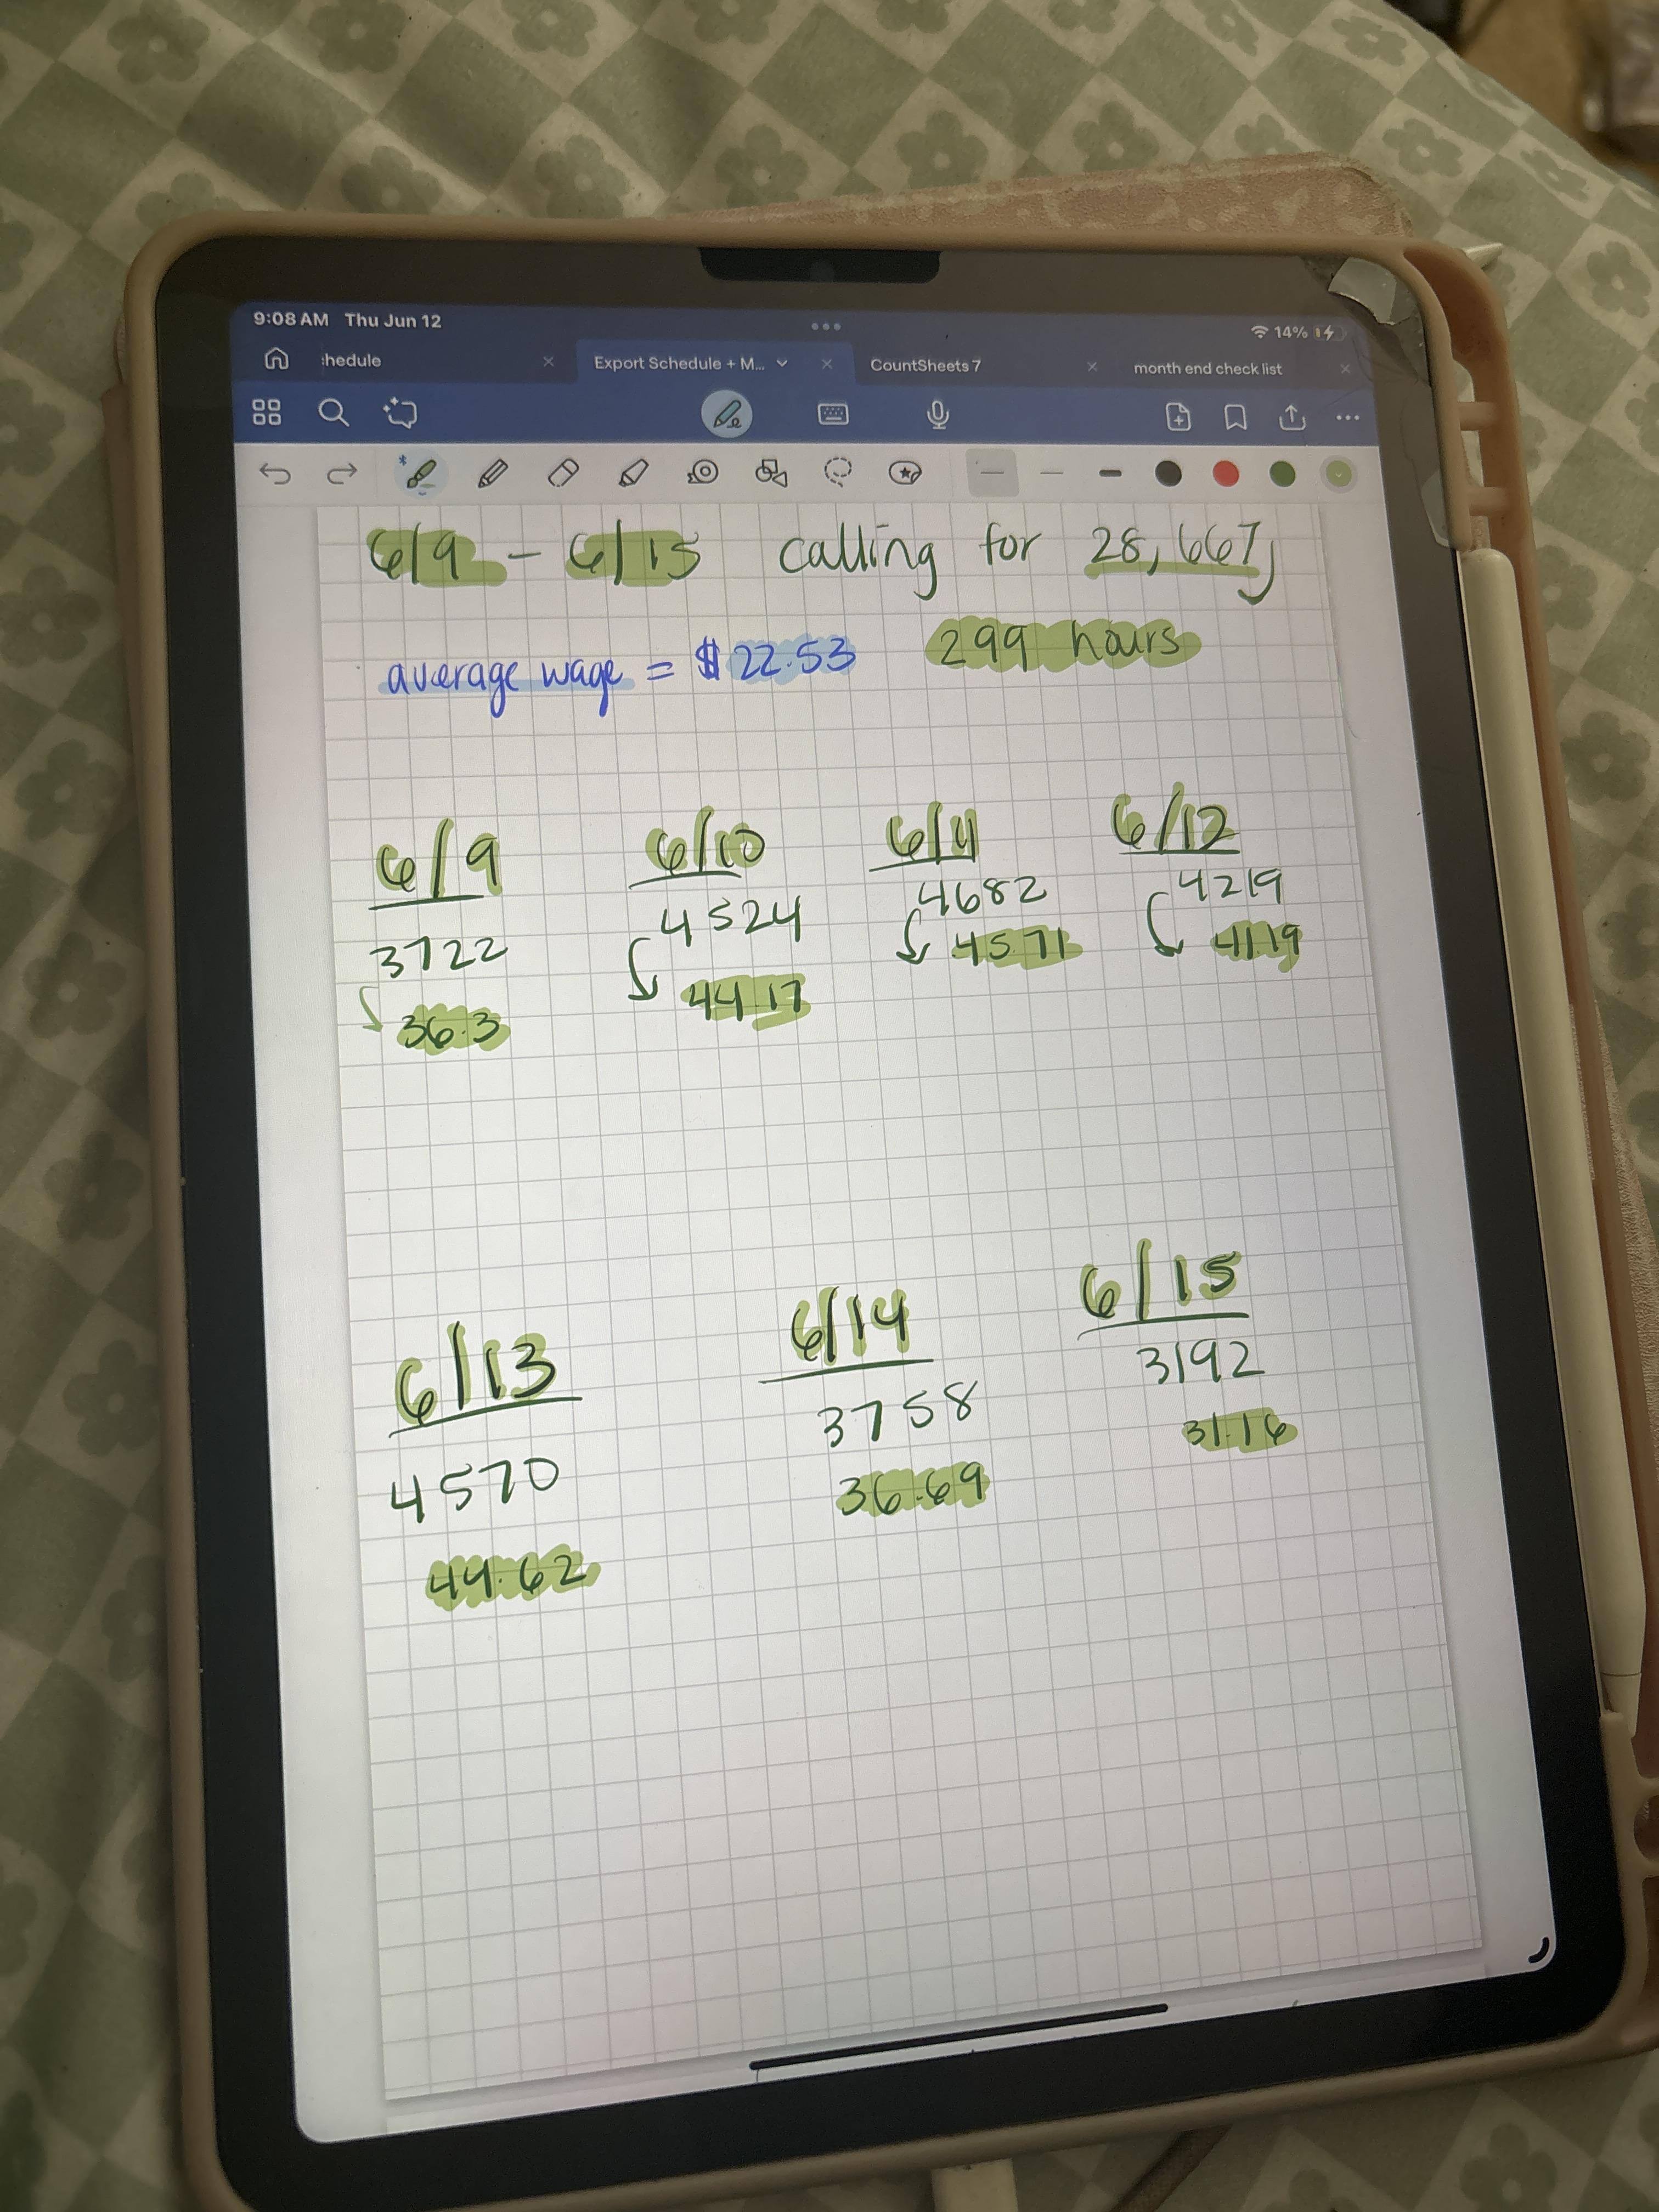 9:08 AM Thu Jun 12
14%
:hedule
Export Schedule + M...
CountSheets 7
month end check list
6/9 - 6/15 calling for 28,667
average wage = $22.53 299 hours
6/9 6/10 6/11 6/12
3722 4524 4682 4219
36.3 44.17 45.71 41.19
6/13 6/14 6/15
4570 3758 3192
44.62 36.69 31.16